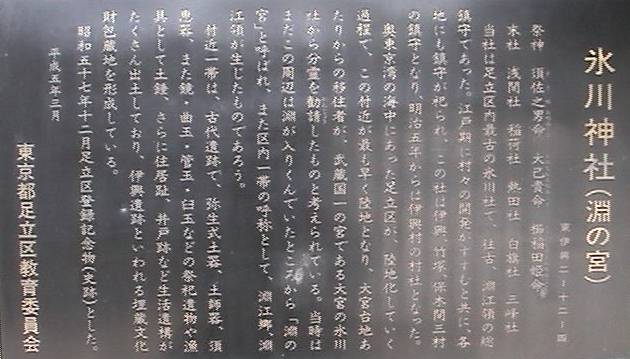 氷川神社(淵の宮)
東伊興二-十二-四
祭神 須佐之男命 大己貴命 櫛稲田姫命
末社 浅間社 稲荷社 熱田社 白旗社 三峰社
当社は足立区内最古の氷川社で、往古、淵江領の総
鎮守であった。江戸期に村々の開発がすすむと共に、各
地にも鎮守が祀られ、この社は伊興、竹塚、保木間三村
の鎮守となり、明治五年からは伊興村の村社となった。
奥東京湾の海中にあった足立区が、陸地化していく
過程で、この付近が最も早く陸地となり、大宮台地あ
たりからの移住者が、武蔵国一の宮である大宮の氷川
社から分霊を勧請したものと考えられている。当時は
まだこの周辺は淵が入りくんでいたところから「淵の
宮」と呼ばれ、また区内一帯の呼称として、淵江郷、淵
江領が生じたものであろう。
付近一帯は、古代遺跡で、弥生式土器、土師器、須
恵器、また鏡・曲玉・管玉・臼玉などの祭祀遺物や漁
具として土錘、さらに住居趾、井戸跡など生活遺構が
たくさん出土しており、伊興遺跡といわれる埋蔵文化
財包蔵地を形成している。
昭和五十七年十二月足立区登録記念物(史跡)とした。
平成五年三月
東京都足立区教育委員会